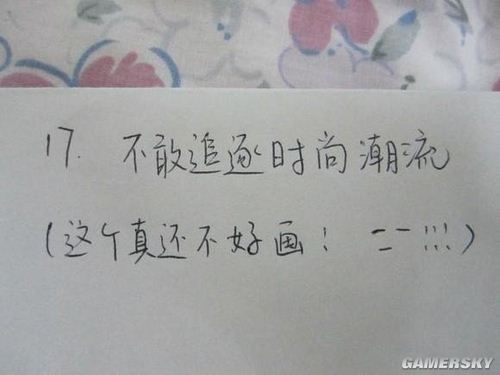 17. 不敢追逐时尚潮流
(这个真还不好画! 二一!!!)
GAMERSKY